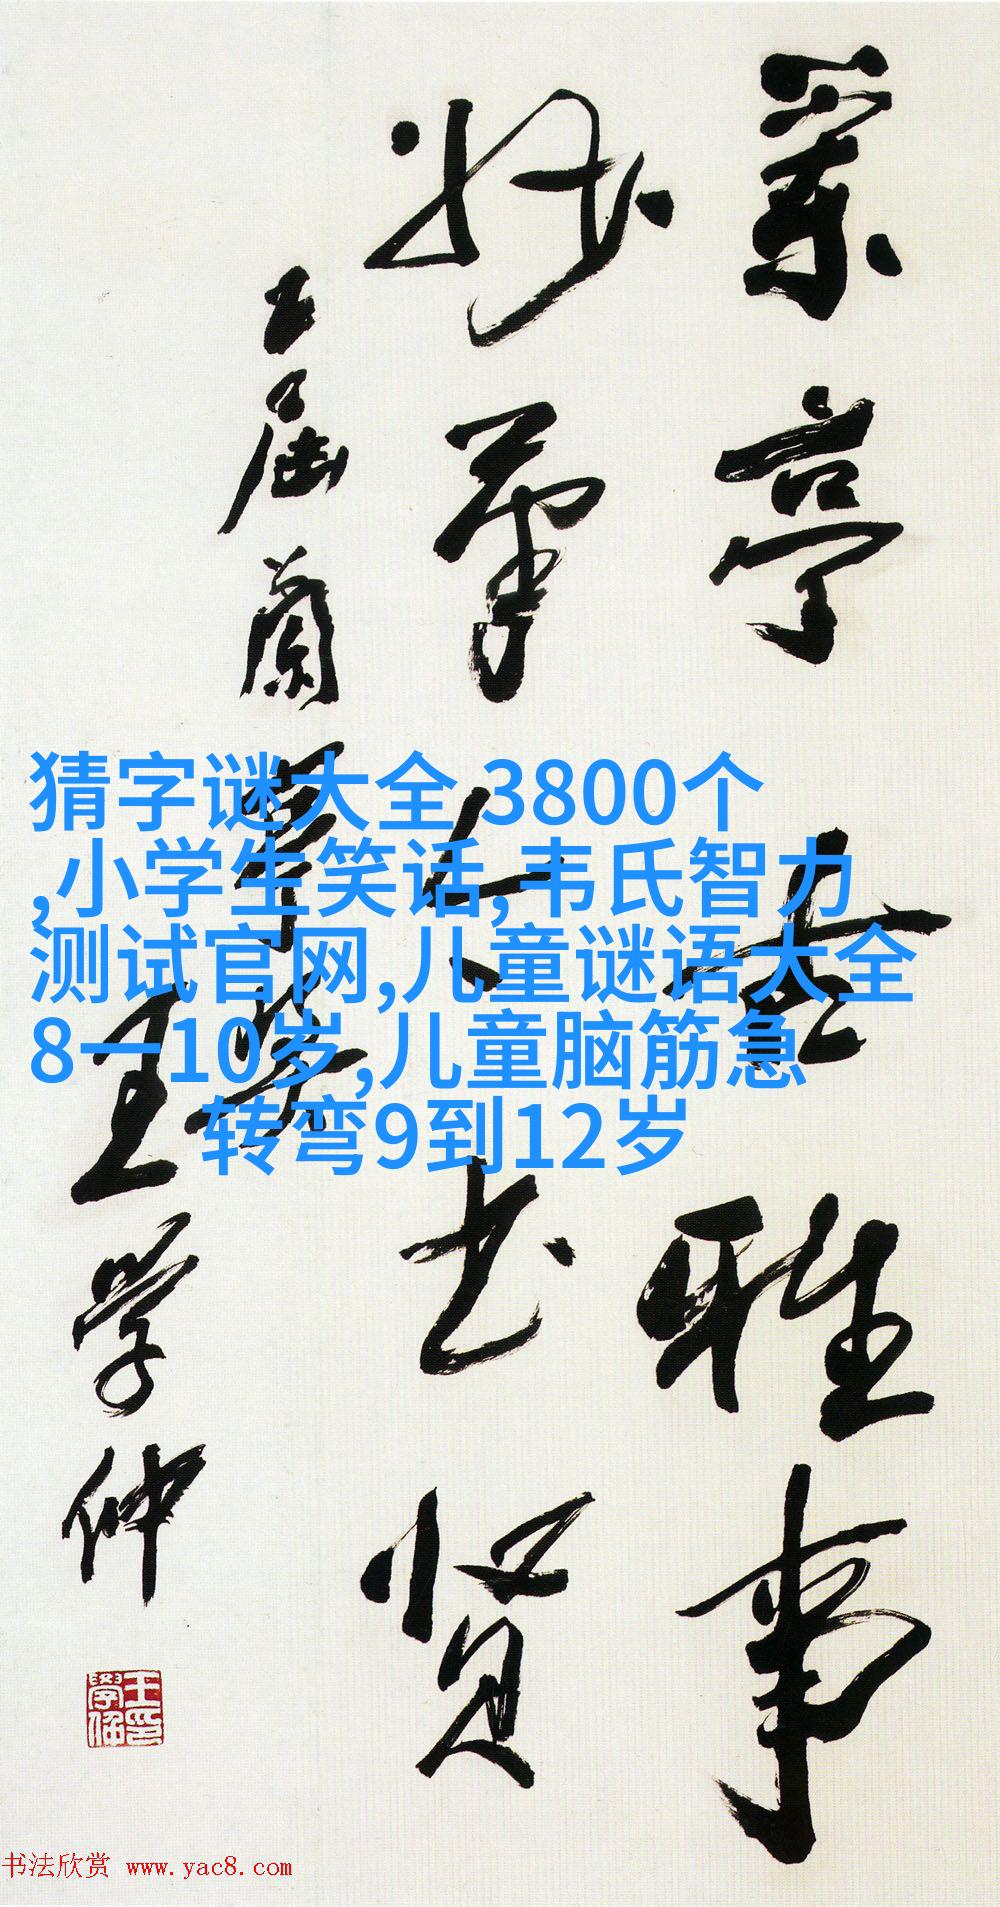 蘭亭雅事
妙笔书贤
五届蘭亭奖
王学仲
猜字谜大全 3800个
,小学生笑话,韦氏智力
测试官网,儿童谜语大全
8一10岁,儿童脑筋急
转弯9到12岁
书法欣赏 www.yac8.com